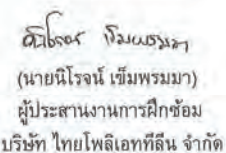 (นายนิโรจน์ เข็มพรมมา)
ผู้ประสานงานการฝึกซ้อม
บริษัท ไทยโพลิเอททีลีน จำกัด